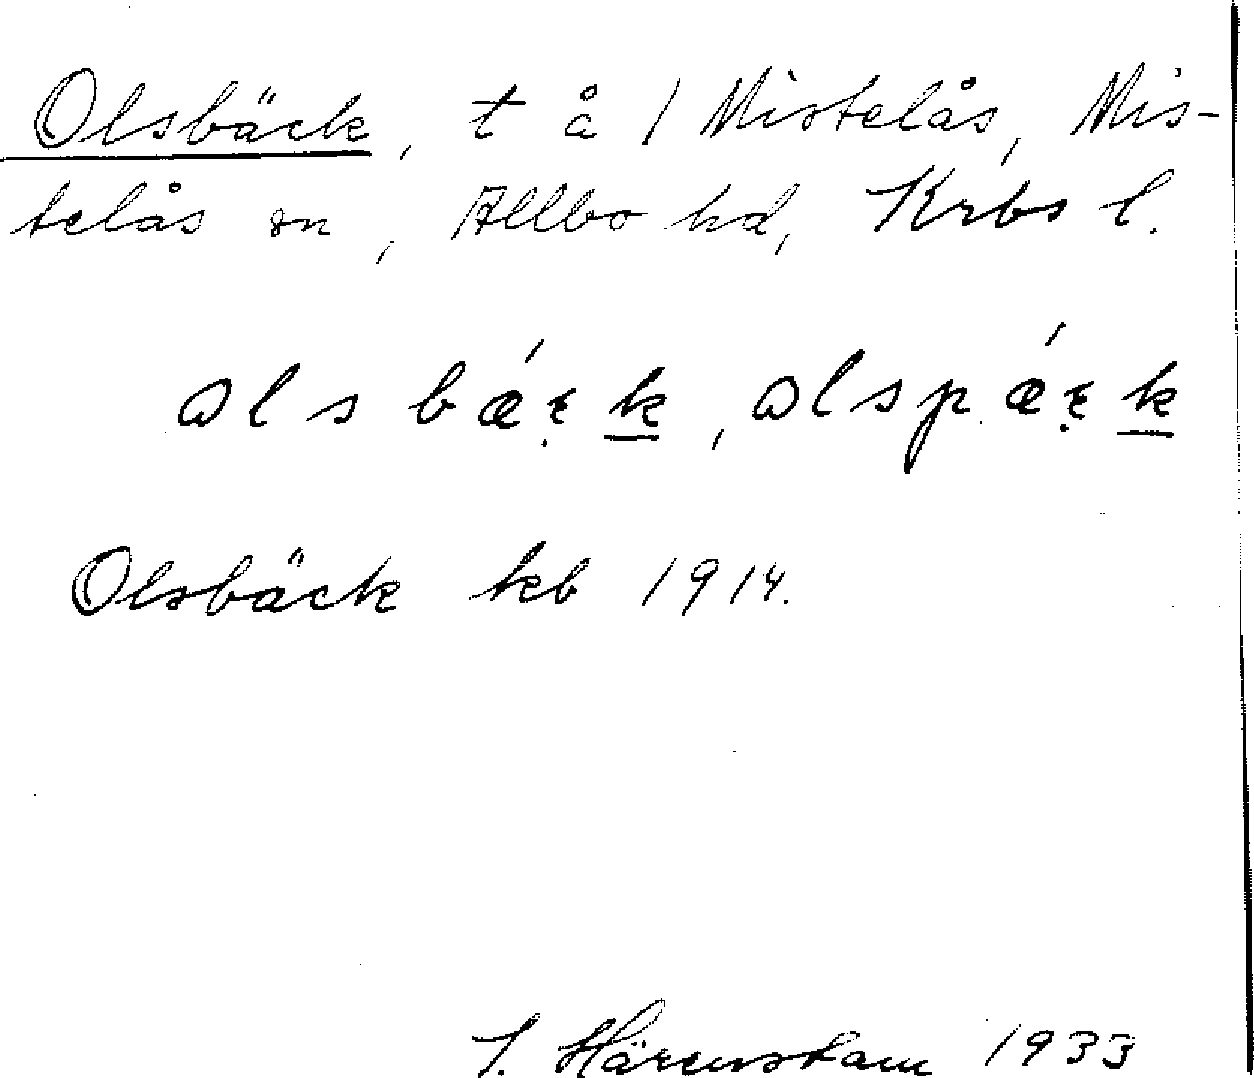 Olsbäck, t å 1 Mistelås, Mis-
telås sn, Allbo hd, Krbs l.
Olsbäck kb 1914.
Härenstam 1933